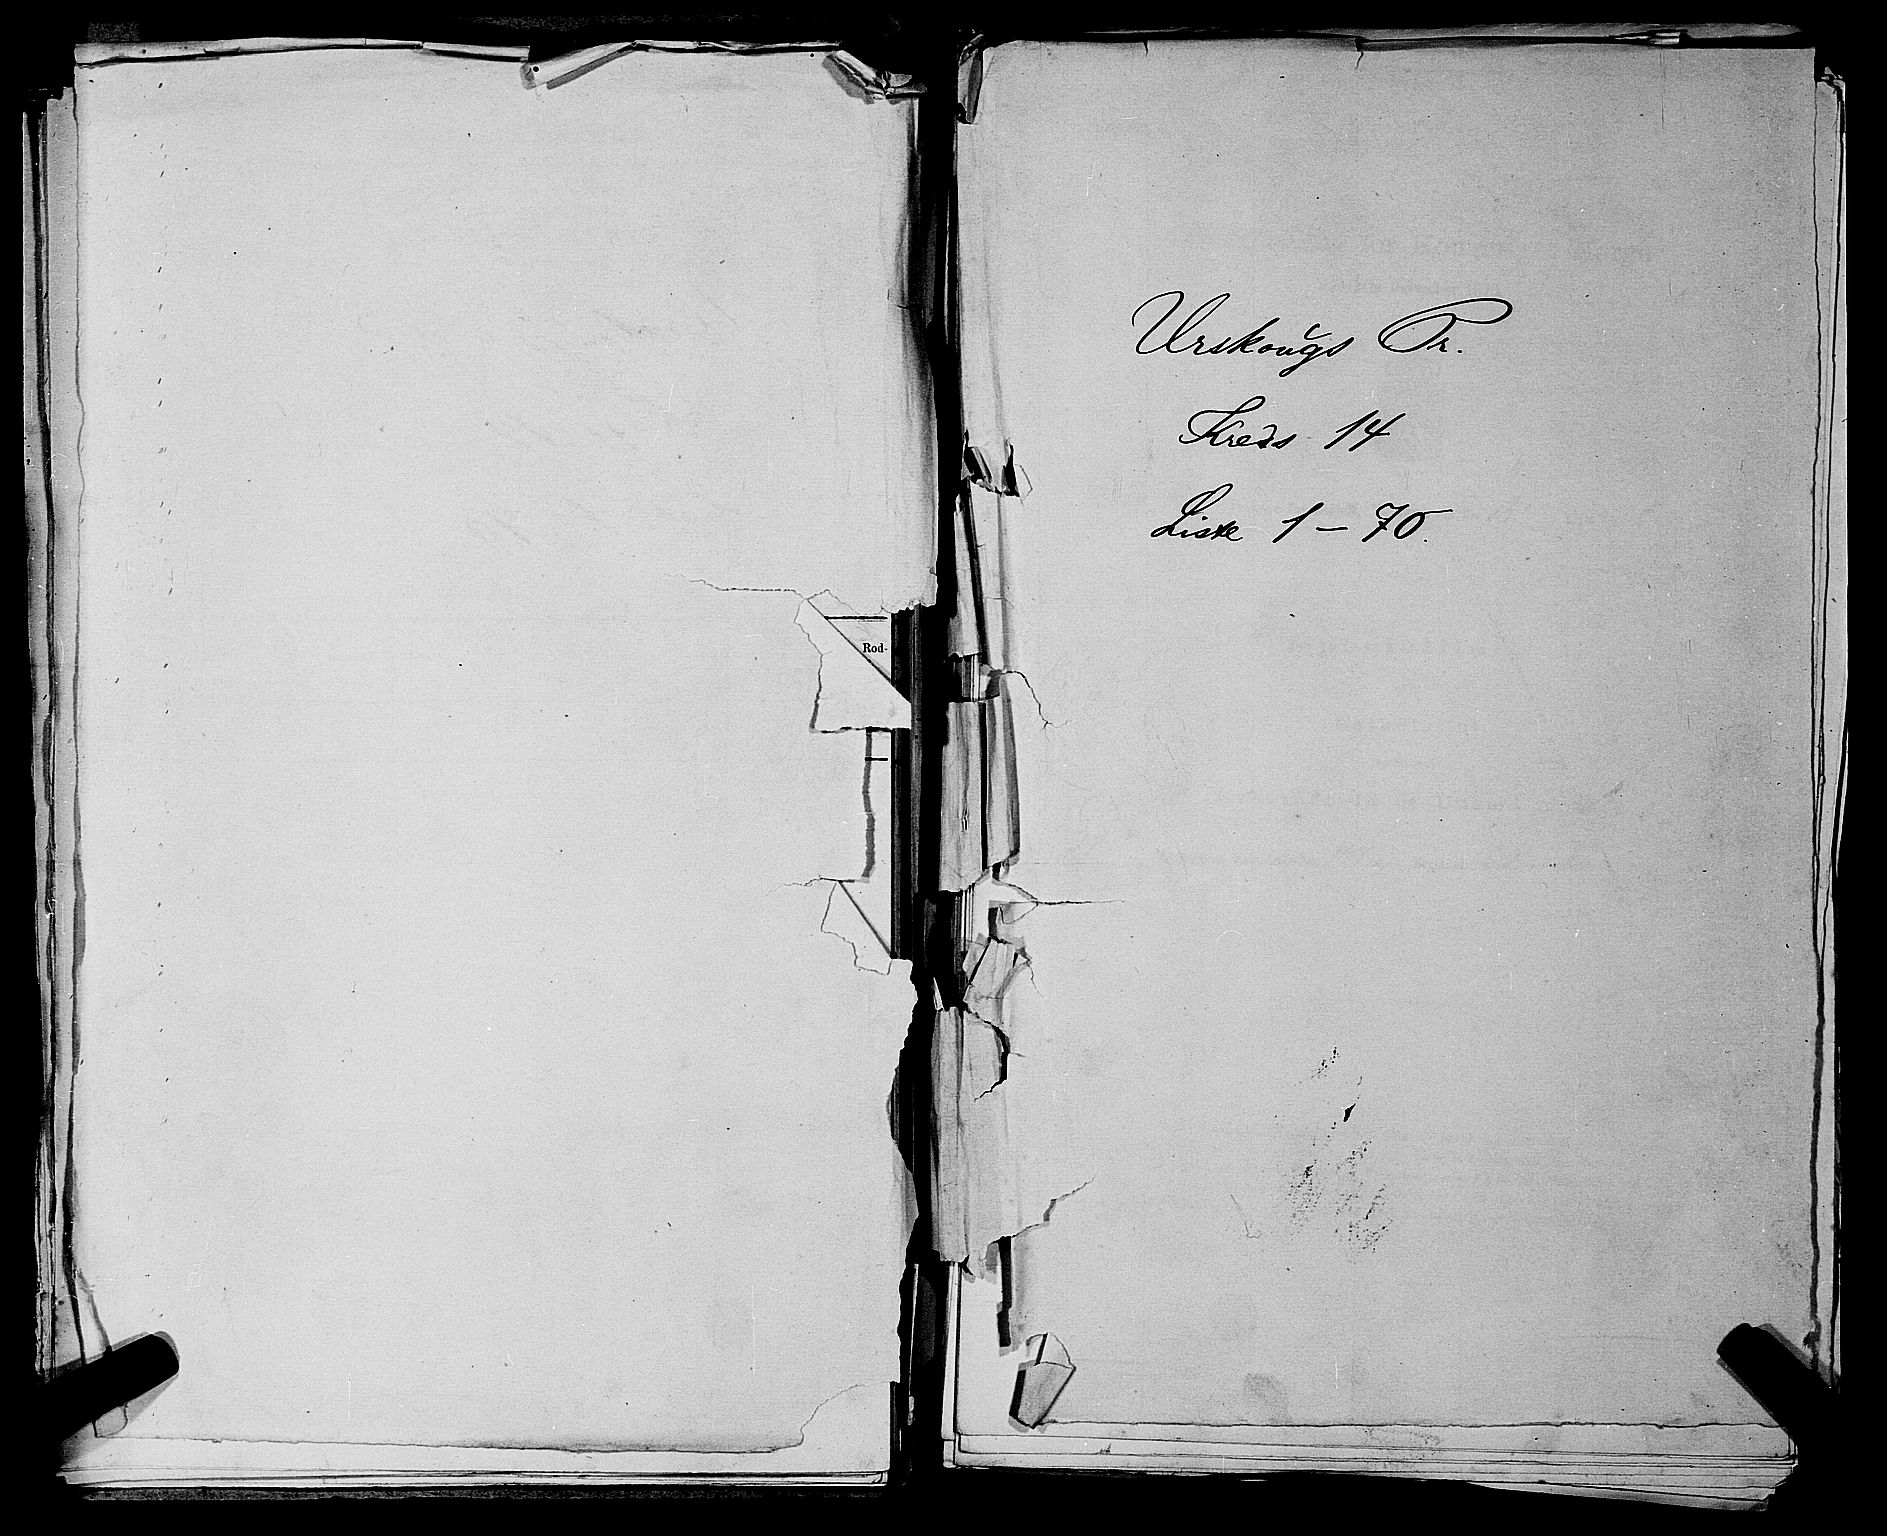 Rod-
Urskougs Pr.
Kreds 14
Liste 1 – 70.